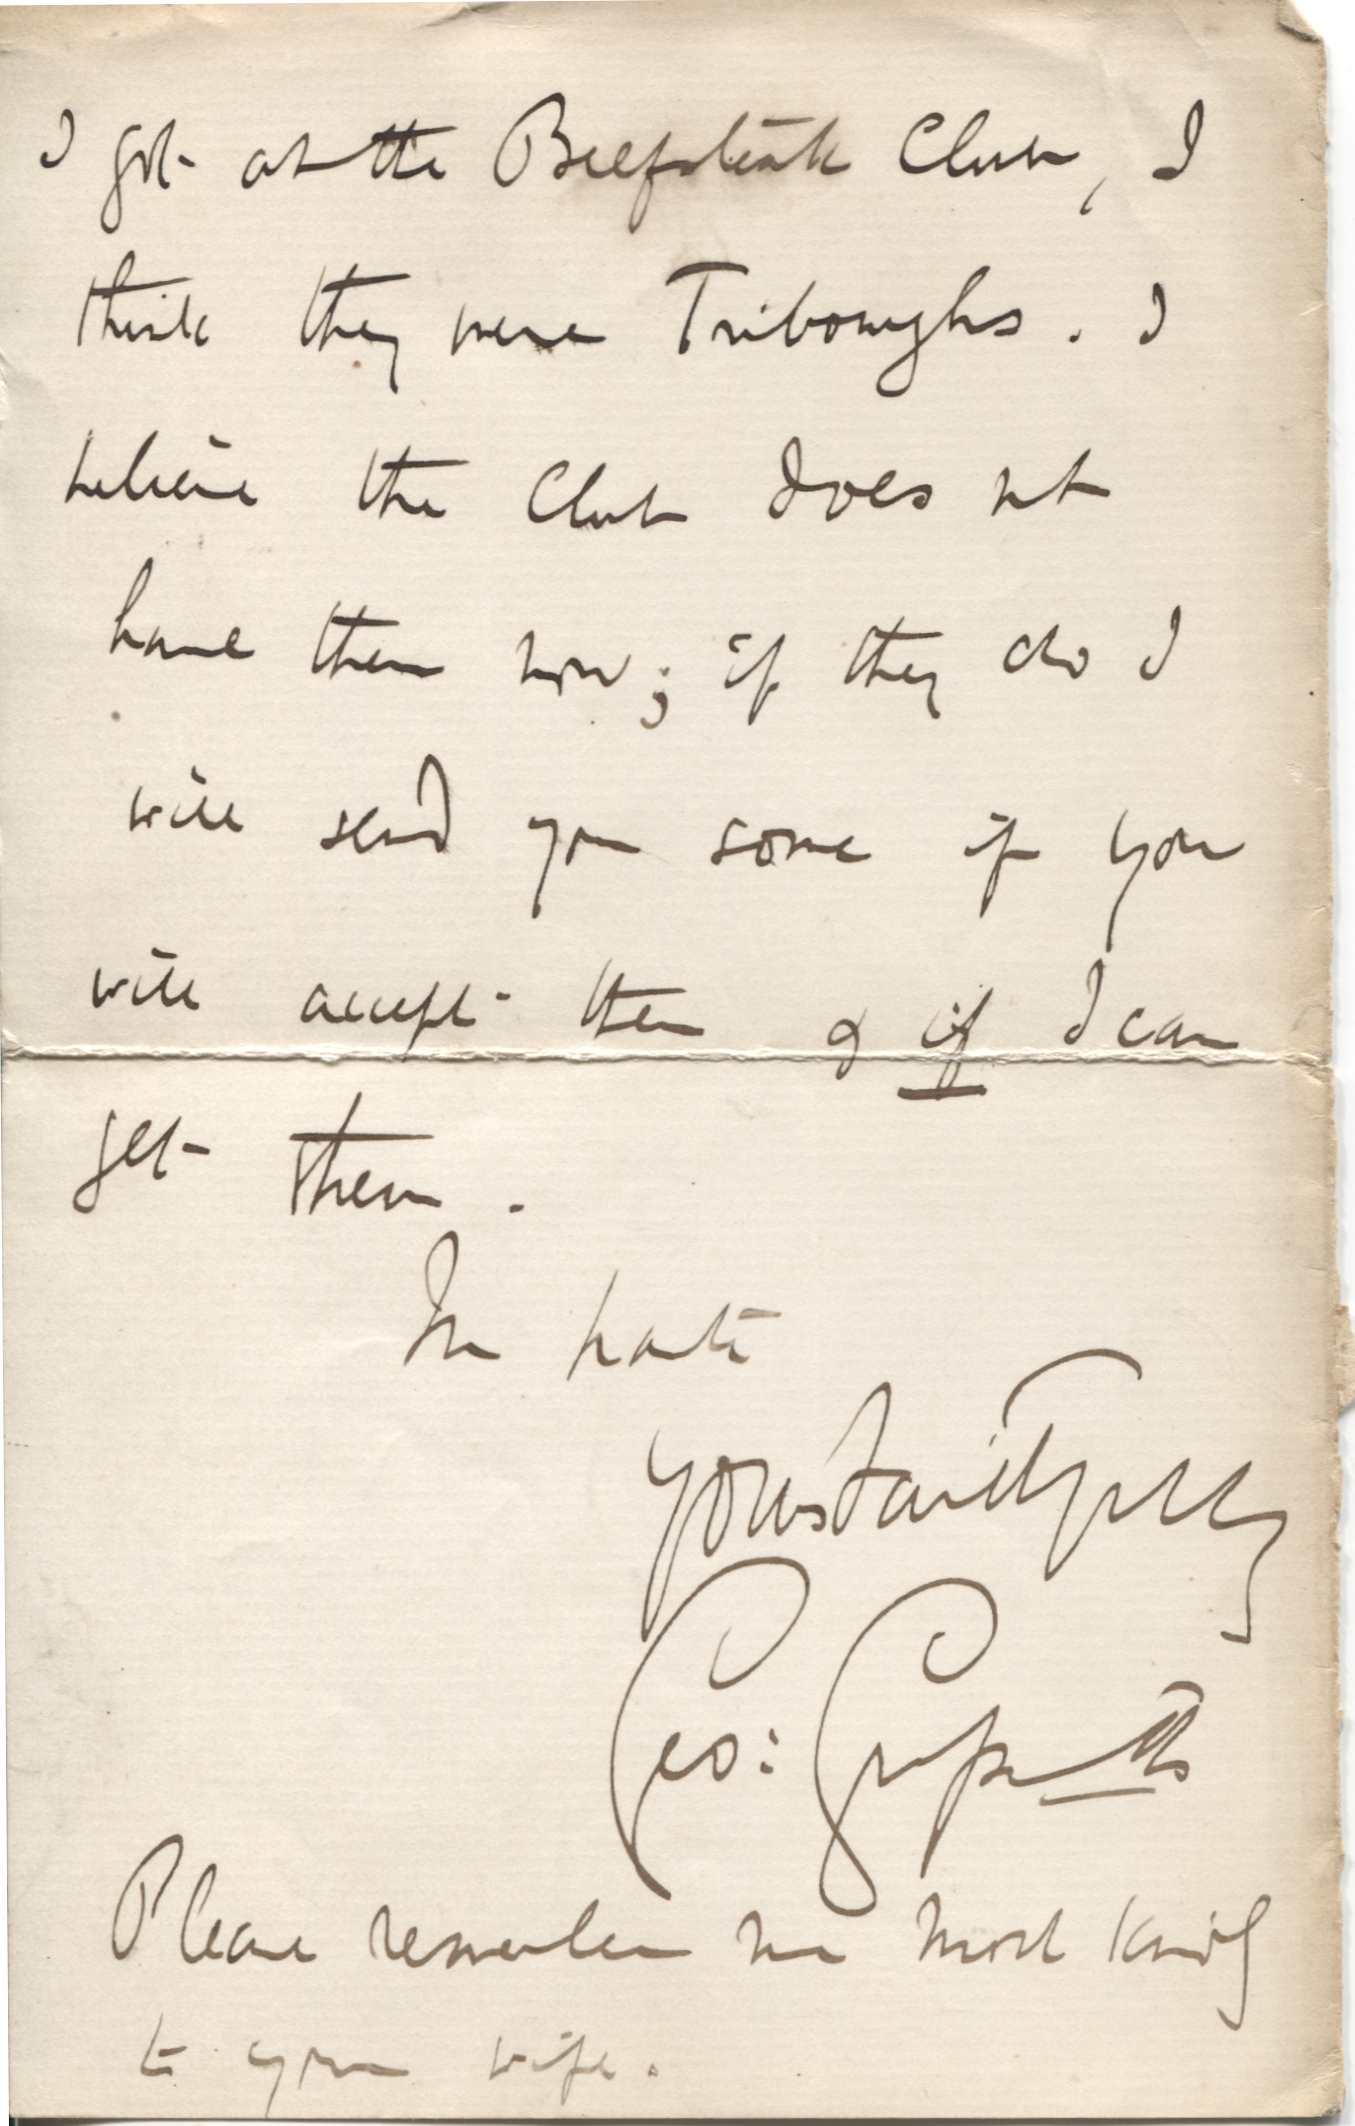 I got at the Beefsteak Club, I
think they were Triboughs. I
believe the Club does not
have them now; if they do I
will send you some if you
will accept them & if I can
get them.
In haste
Yours faithfully
Geo: Grossmith
Please remember me most kindly
to your wife.